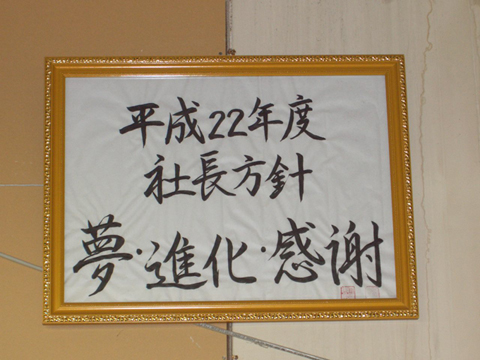 平成22年度
社長方針
夢・進化・感謝